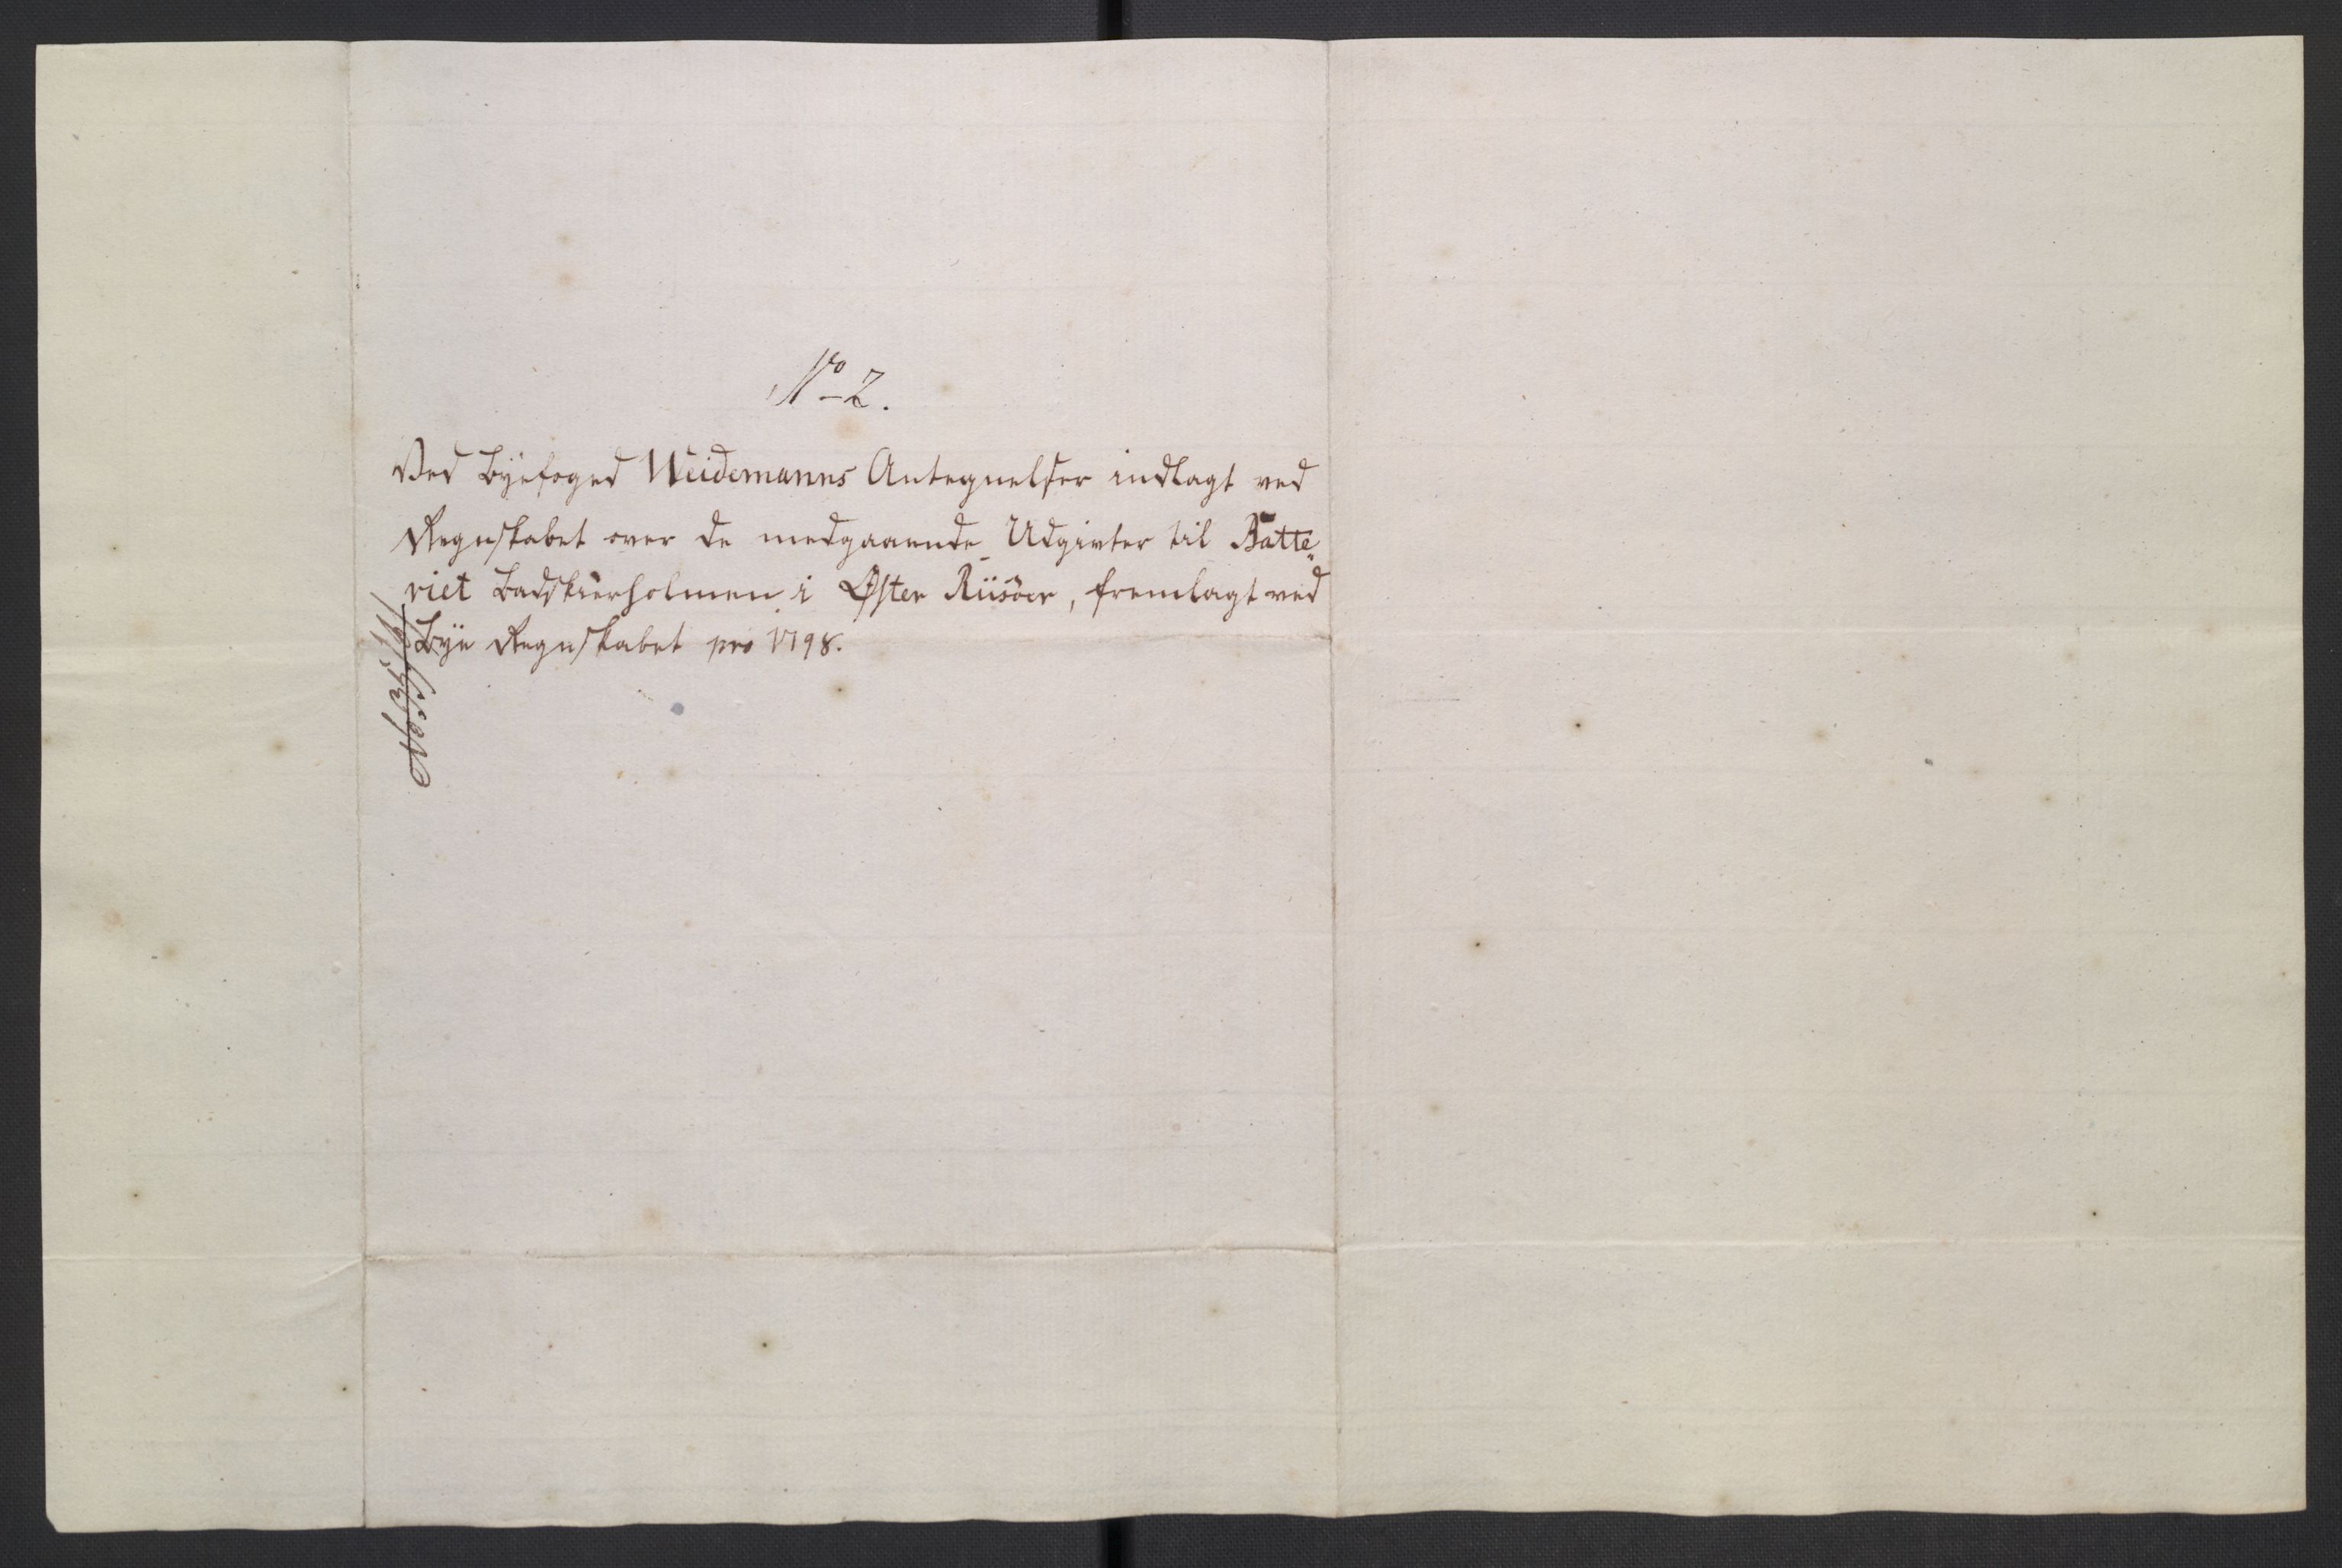 No 2.
Ved Byefoged Weidemanns Antegnelser indlagt ved
Regnskabet over de medgaaende Udgivter til Batte„
riet Badskierholmen i Øster Riisöer, fremlagt ved
Bye Regnskabet pro 1798.